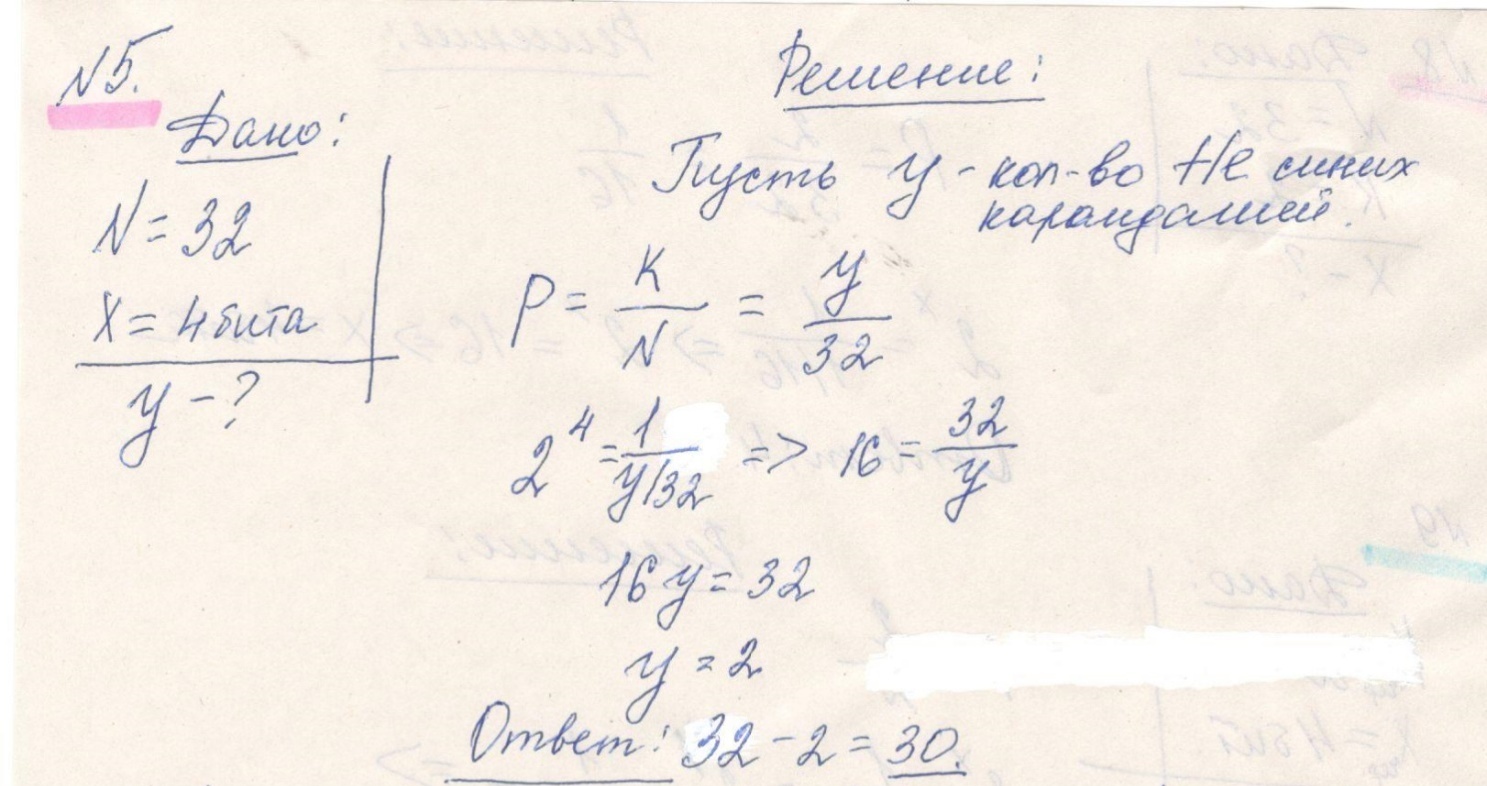 №5.
Дано:
N = 32
X = 4 бита
y - ?
Решение:
Пусть y - кол-во Не синих
карандашей.
P = K/N = y/32
2^4 = 1/(y/32) => 16 = 32/y
16 y = 32
y = 2
Ответ: 32 - 2 = 30.